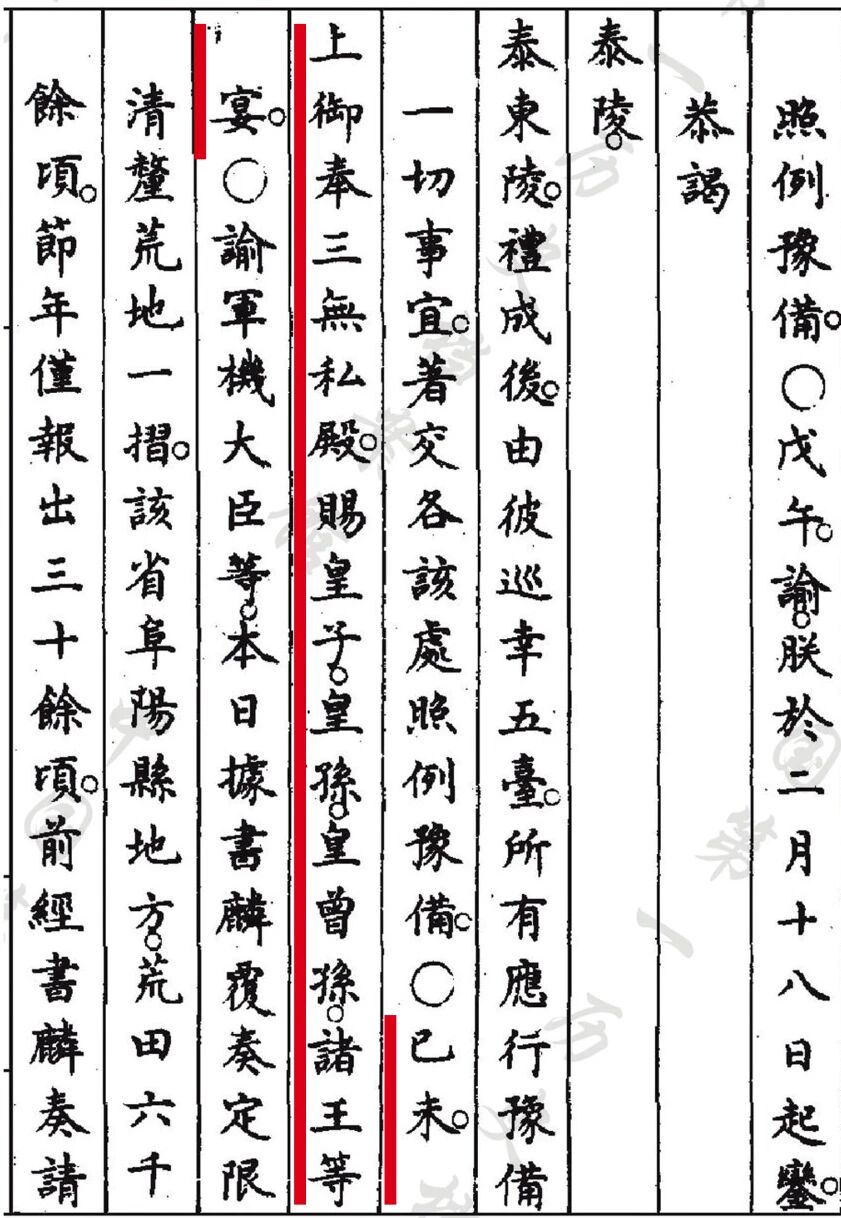 照例豫備。○戊午。諭。朕於二月十八日起鑾。
恭謁
泰陵。
泰東陵。禮成後。由彼巡幸五臺。所有應行豫備
一切事宜。著交各該處照例豫備。○己未。
上御奉三無私殿。賜皇子。皇孫。皇曾孫。諸王等
宴。○諭軍機大臣等。本日據書麟覆奏定限
清釐荒地一摺。該省阜陽縣地方。荒田六千
餘頃。節年僅報出三十餘頃。前經書麟奏請